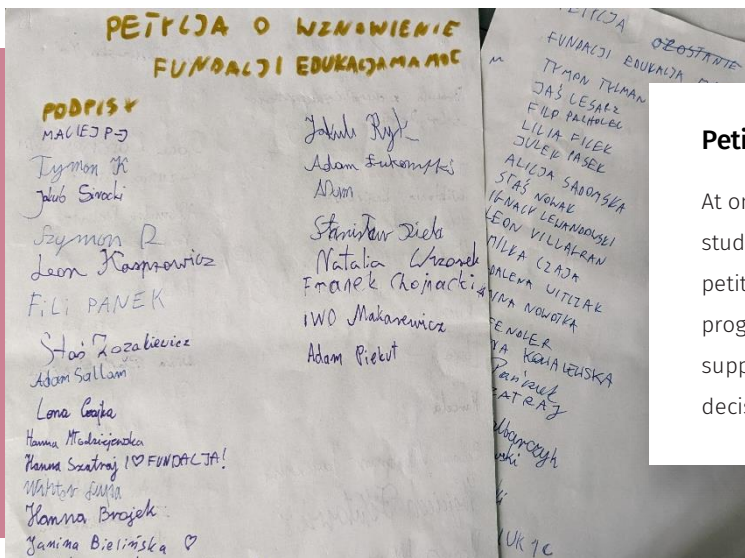 PETYCJA O WZNOWIENIE
FUNDACJI EDUKACJAMAMOC
PODPISY
MACIEJ P
Tymon K
Jakub Sirocki
Szymon R
Leon Kasprowicz
FILI PANEK
Staś Zozakiewicz
Adam Sallam
Lena Czajka
Hanna
Hanna Szatraj I ♡ FUNDACJA!
Wiktor
Hanna Brojek
Janina Bielińska ♡
Jakub Ryk
Adam
Stanisław
Natalia Wrzosek
Franek Chojnacki
IWO Makarewicz
Adam Piekut
PETYCJA
OZOSTANIE
FUNDACJI EDUKACJA
TYMON TYLMAN
JAŚ LESARZ
FILIP PACHOLEC
LILIA FILEK
JULEK PASEK
ALICJA SADOMSKA
STAŚ NOWAK
IGNACY LEWANDOWSKI
LEON VILLAGRAN
MILKA CZAJA
DALENA WITCZAK
NINA NOWOTKA
FENDLER
KOWALEWSKA
ATRAJ
Peti
At or
stud
petit
prog
supp
decis